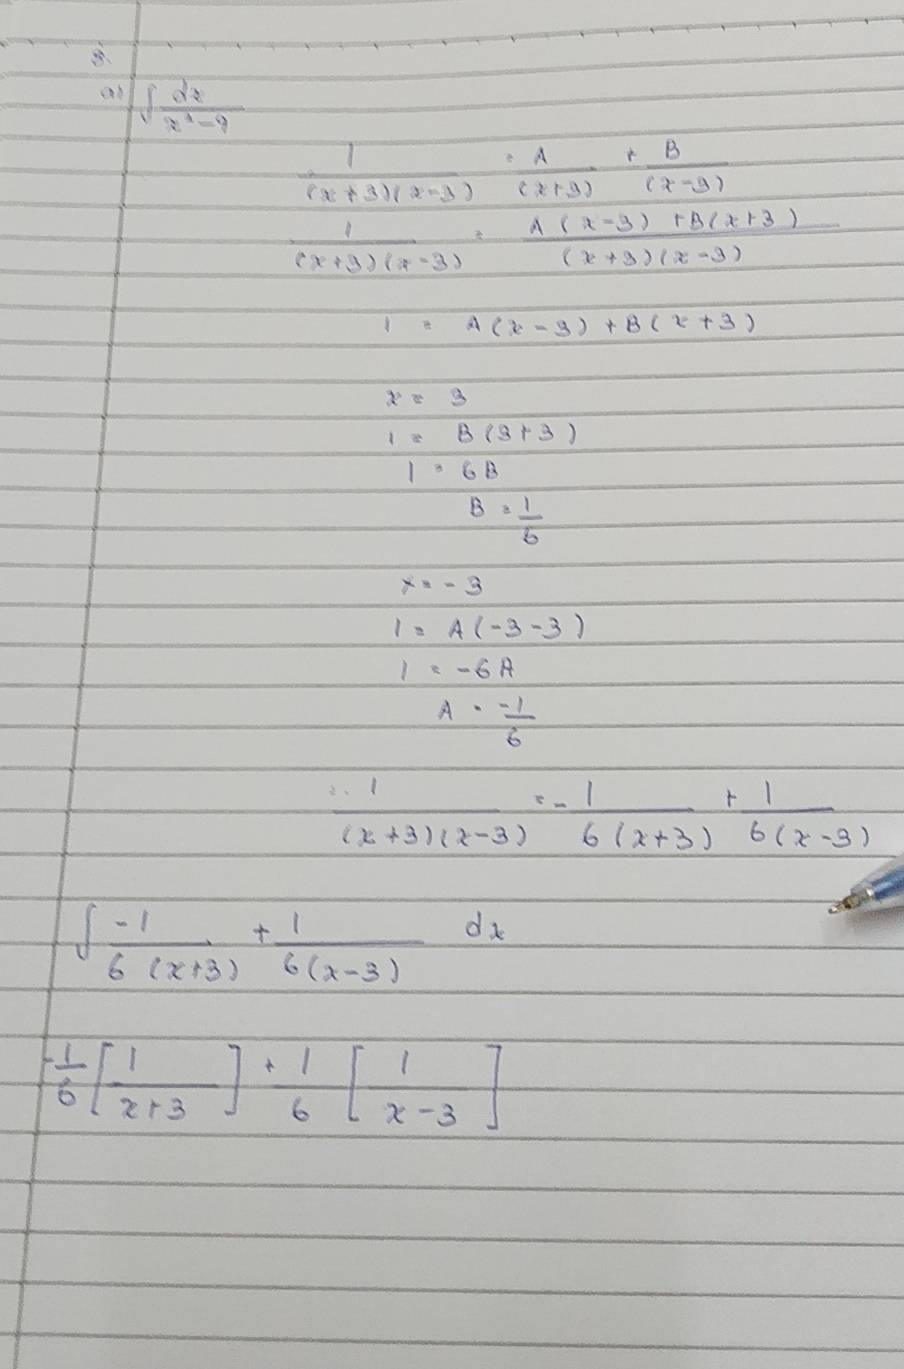 3.
a) ∫ dx / x² - 9
1 / (x+3)(x-3) = A / (x+3) + B / (x-3)
1 / (x+3)(x-3) = A(x-3) + B(x+3) / (x+3)(x-3)
1 = A(x-3) + B(x+3)
x = 3
1 = B(3+3)
1 = 6B
B = 1/6
x = -3
1 = A(-3-3)
1 = -6A
A = -1/6
∴ 1 / (x+3)(x-3) = - 1 / 6(x+3) + 1 / 6(x-3)
∫ -1 / 6(x+3) + 1 / 6(x-3) dx
-1/6 [1 / x+3] + 1/6 [1 / x-3]